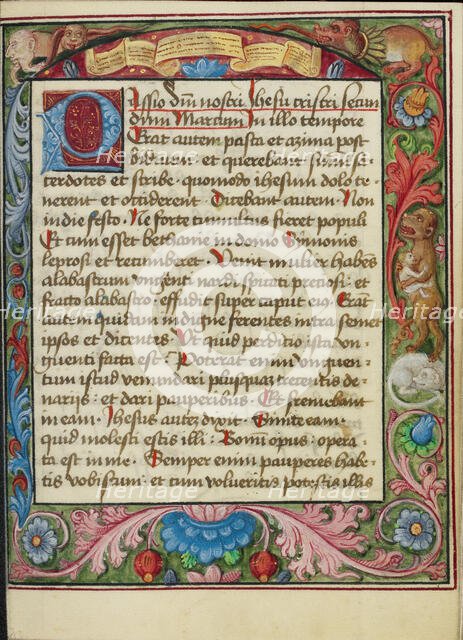 Passio dñi nostri Jhesu cristi secun
dum Marcum In illo tempore
Erat autem pasca et azima post
biduum · et querebant summi sa
cerdotes et scribe · quomodo ihesum dolo te
nerent et occiderent Dicebant autem · Non
in die festo · Ne forte tumultus fieret populi
Et cum esset bethanie in domo Symonis
leprosi et recumberet · Venit mulier habēs
alabastrum vngenti nardi spicati preciosi · et
fracto alabastro · effudit super caput eiꝰ · Erāt
aūt quidam indigne ferentes intra semet
ipsos et dicentes · Vt quid perditio ista vn
guenti facta est · Poterat enim vnguen
tum istud venundari plusquaz trecentis de
narijs · et dari pauperibus · Et fremebant
in eam · Jhesus autez dixit · Sinite eam ·
quid molesti estis illi · Bonū opus · opera
ta est in me · Semper enim pauperes habe
tis vobiscum · et cum volueritis potestis illis
Heritage
Heritage
Heritage
Heritage
Heritage
Heritage